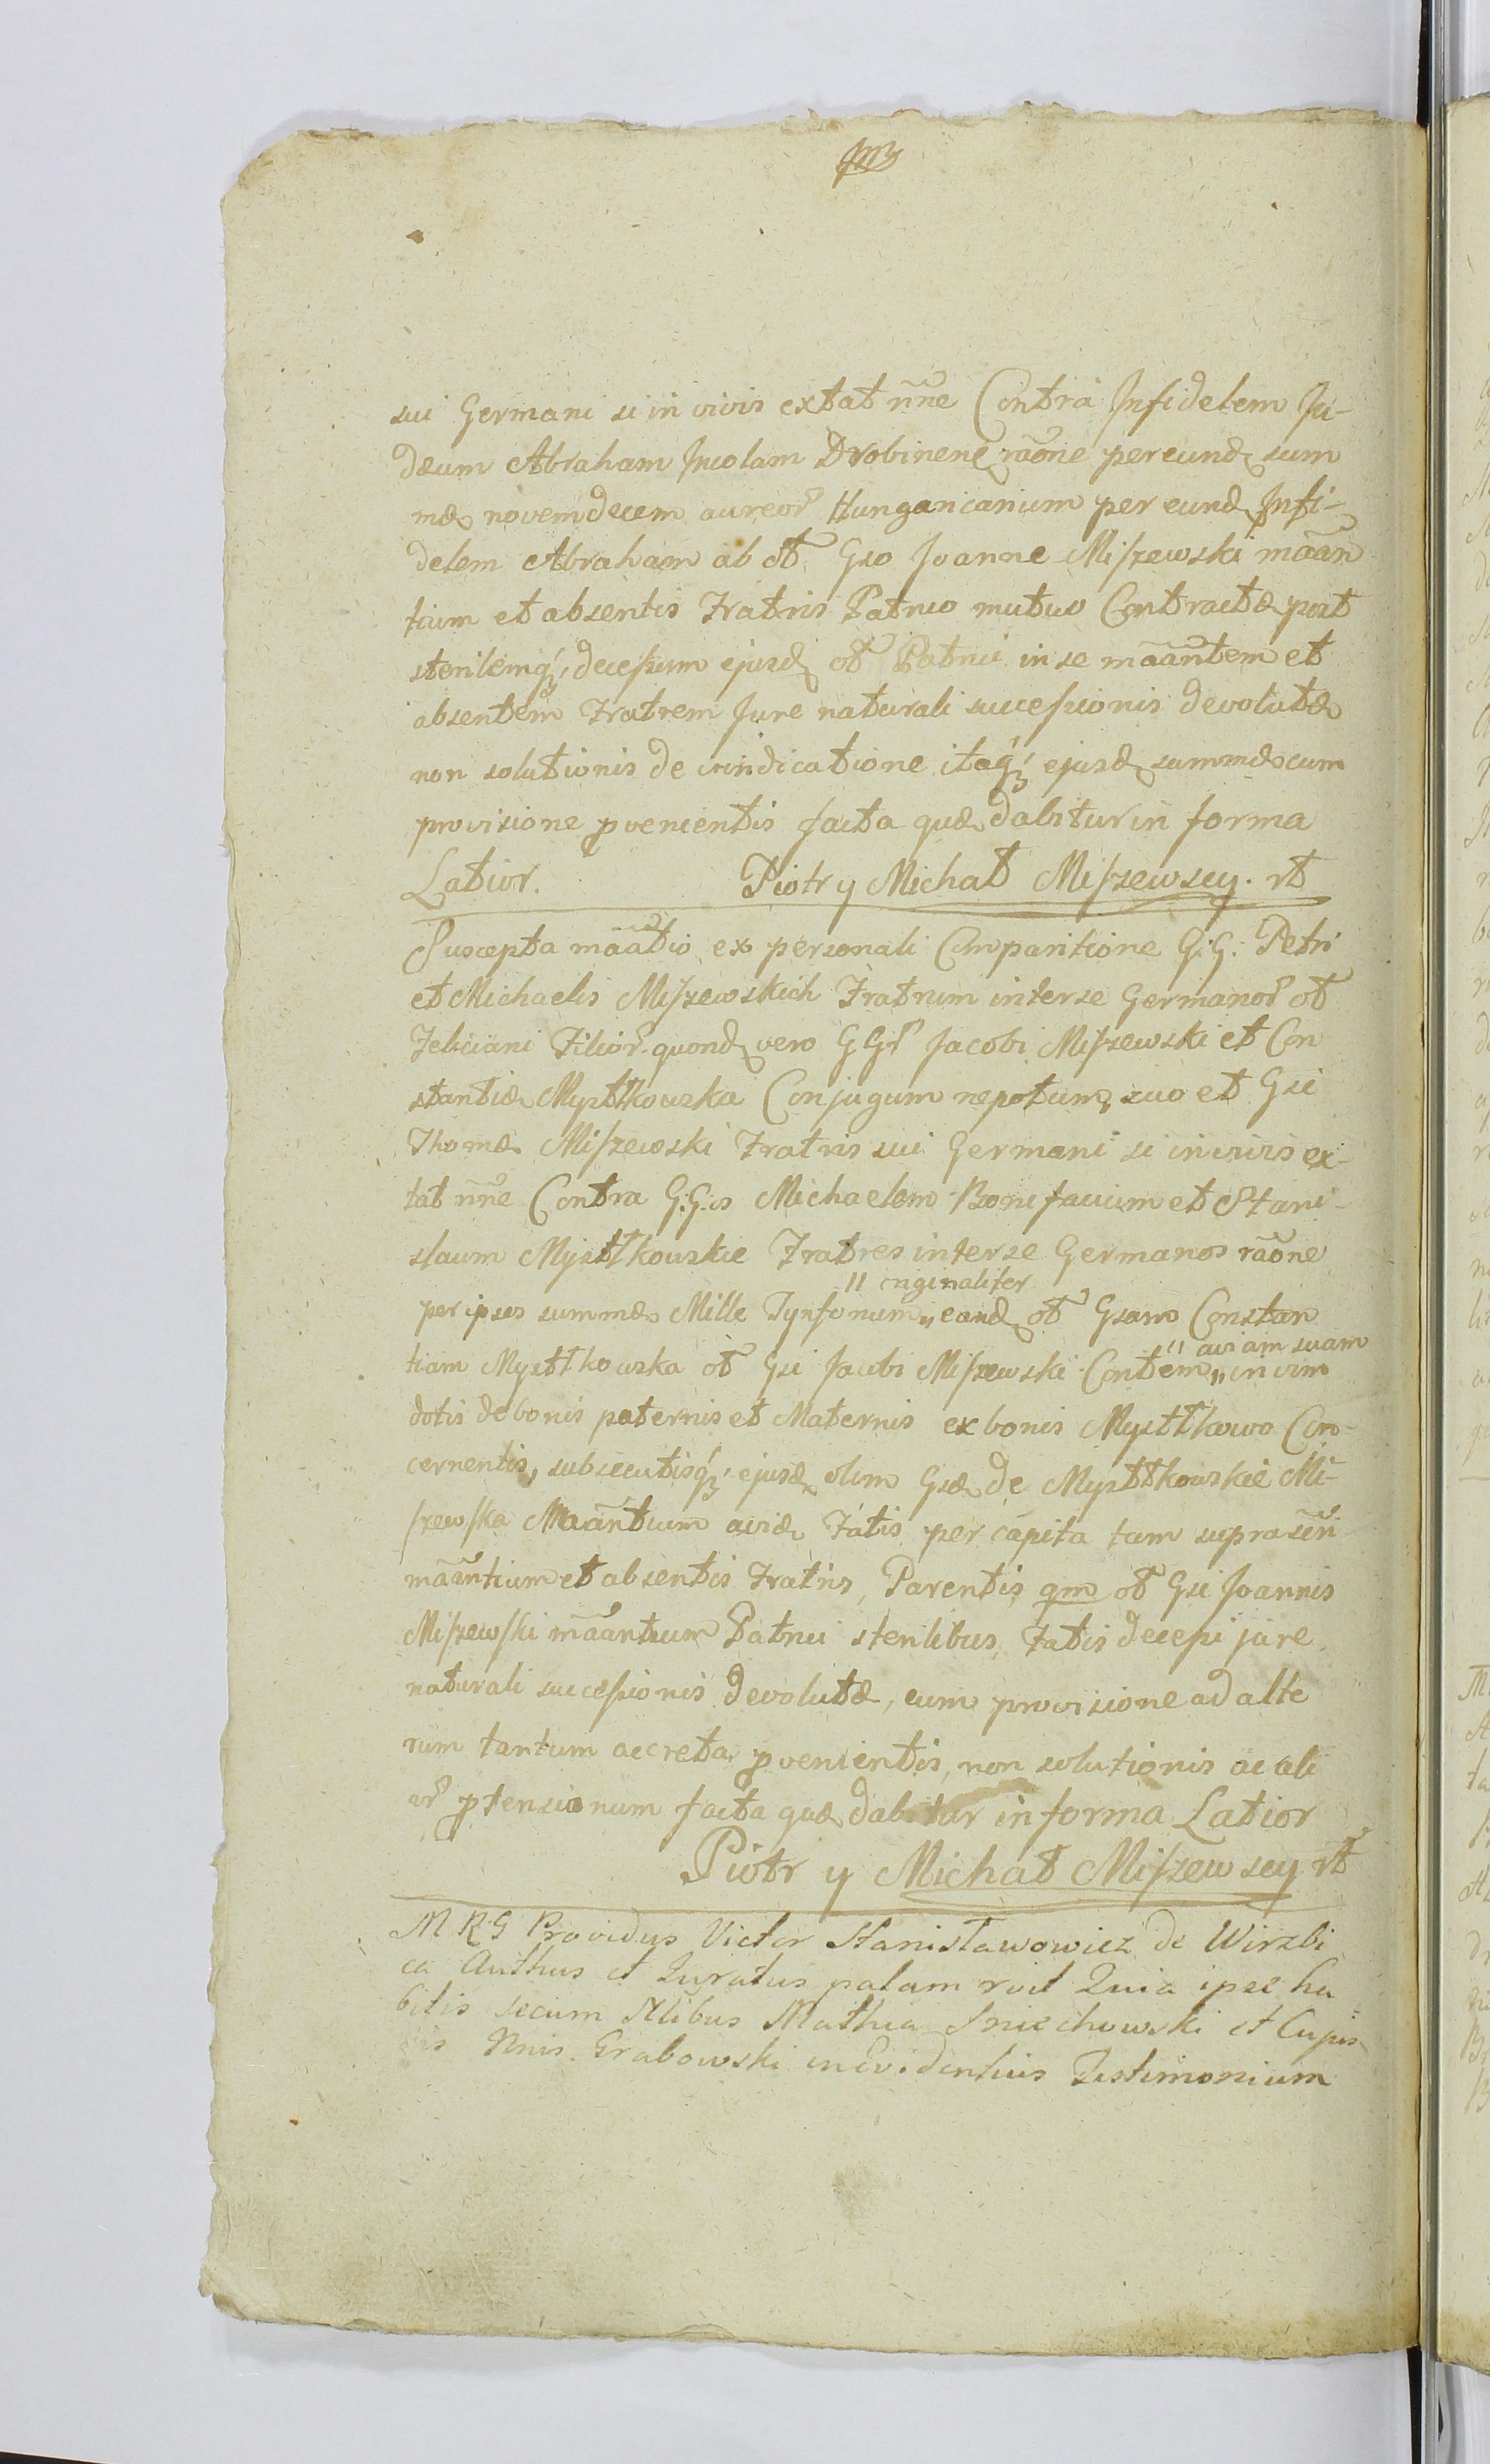 sui Germani si in vivis extat nne Contra Infidelem Ju-
dæum Abraham Incolam Drobinens raone per eund sum
mæ novemdecem aureor Hungaricarium per eund Infi-
delem Abraham ab ol Gso Joanne Miszewski maan
tium et absentis Fratris Patruo mutuo Contractæ post
sterilemq decessum ejusd ol Patrui in se maantem et
absentem Fratrem Jure naturali successionis devolutæ
non solutionis de vindicatione itaq ejusd summæ cum
provisione pvenientis facta quæ dabitur in forma
Latior. Piotr y Michał Miszewscy. rt
Suscepta maatio ex personali Comparitione G:G: Petri
et Michaelis Miszewskich Fratrum inter se Germanor ol
Feliciani Filior quond vero GGr Jacobi Miszewski et Con
stantiæ Mystkowska Conjugum nepotum, suo et Gsi
Thomæ Miszewski Fratris sui Germani si in vivis ex-
tat nne Contra G:G:os Michaelem Bonifacium et Stani-
slaum Mystkowskie Fratres inter se Germanos raone
" originaliter
per ipsos summæ Mille Tynfonum " eand ol Gsam Constan
" aviam suam
tiam Mystkowska ol Gsi Jacobi Miszewski Contem " in vim
dotis de bonis paternis et Maternis ex bonis Mystkowo Con-
cernentis, subsecutisq ejusd olim Gsæ de Mystkowskie Mi-
szewska Maantium aviæ Fatis per capita tam suprascri
maantium et absentis Fratris, Parentis qm ol Gsi Joannis
Miszewski maantium Patrui sterilibus Fatis decessi jure
naturali successionis devolutæ, cum provisione ad alte
rum tantum accreta pvenientis, non solutionis ac ali
ar ptensionum facta quæ dabitur in forma Latior
Piotr y Michał Miszewscy rt
M R G Providus Victor Stanisławowicz de Wirzbi
ca Authus et Juratus palam rvit Quia ipse ha
bitis secum Nlibus Mathia Sniechowski et
Nnis Grabowski in Evidentius Testimonium